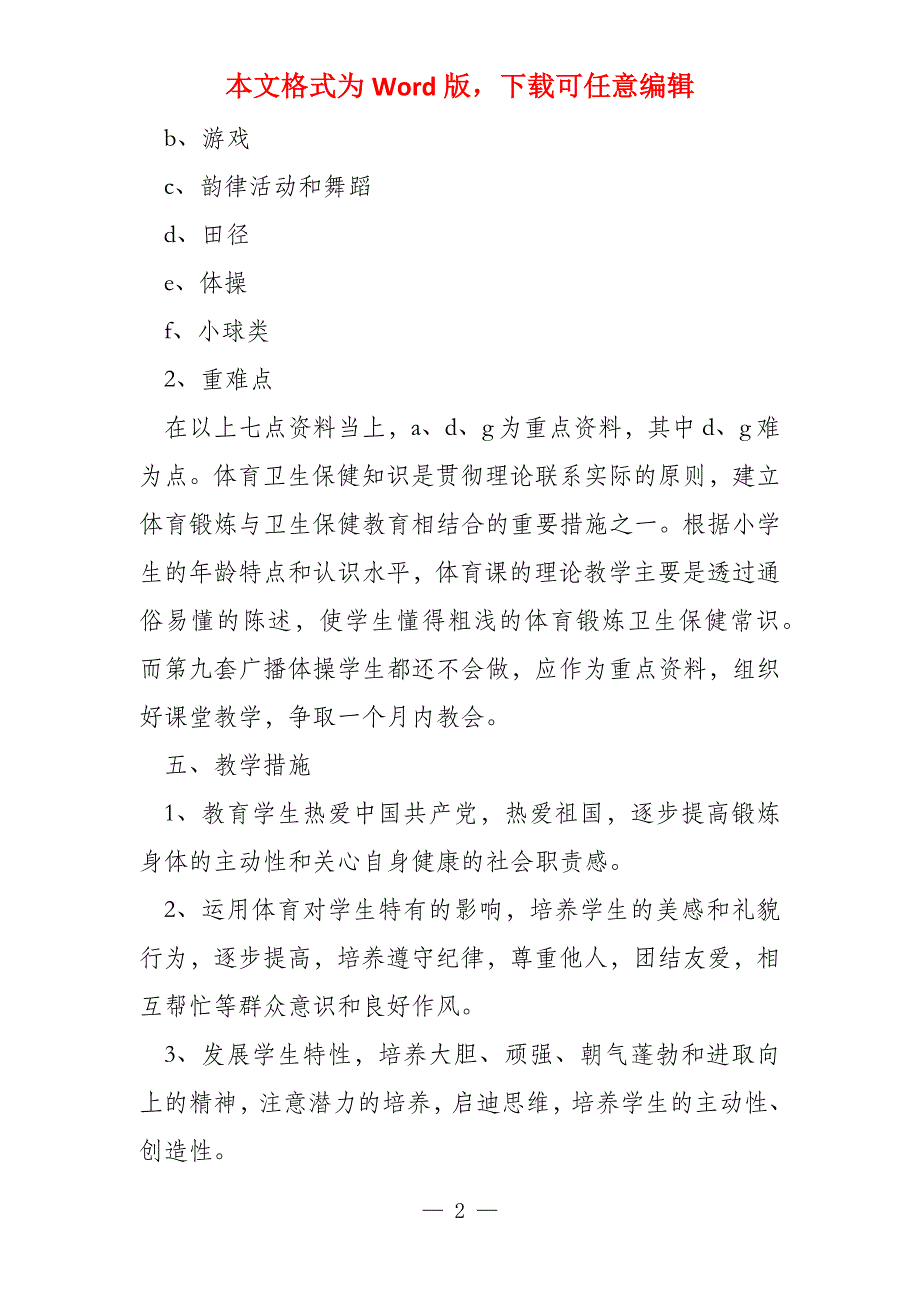 本文格式为 Word 版，下载可任意编辑
b、游戏
c、韵律活动和舞蹈
d、田径
e、体操
f、小球类
2、重难点
在以上七点资料当上，a、d、g 为重点资料，其中 d、g 难
为点。体育卫生保健知识是贯彻理论联系实际的原则，建立
体育锻炼与卫生保健教育相结合的重要措施之一。根据小学
生的年龄特点和认识水平，体育课的理论教学主要是透过通
俗易懂的陈述，使学生懂得粗浅的体育锻炼卫生保健常识。
而第九套广播体操学生都还不会做，应作为重点资料，组织
好课堂教学，争取一个月内教会。
五、教学措施
1、教育学生热爱中国共产党，热爱祖国，逐步提高锻炼
身体的主动性和关心自身健康的社会职责感。
2、运用体育对学生特有的影响，培养学生的美感和礼貌
行为，逐步提高，培养遵守纪律，尊重他人，团结友爱，相
互帮忙等群众意识和良好作风。
3、发展学生特性，培养大胆、顽强、朝气蓬勃和进取向
上的精神，注意潜力的培养，启迪思维，培养学生的主动性、
创造性。
— 2 —